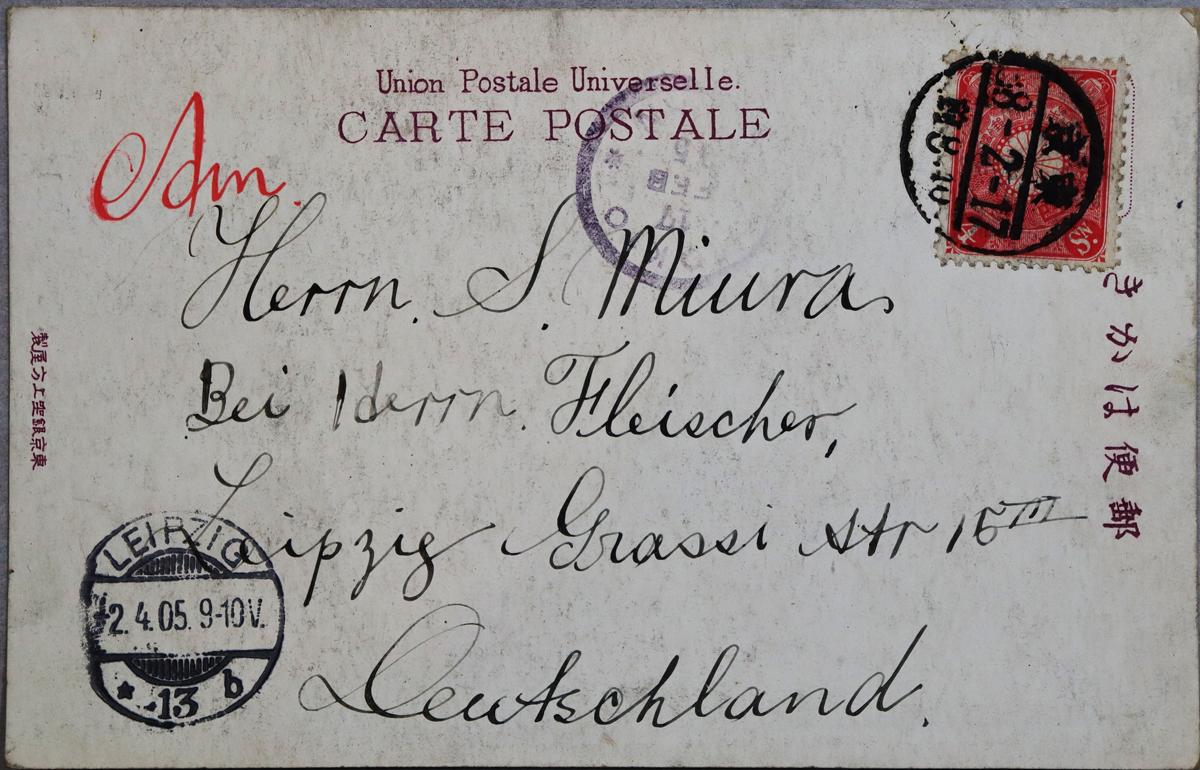 Union Postale Universelle.
CARTE POSTALE
Am.
Herrn. S. Miura,
Bei Herrn. Fleischer,
Leipzig Grassi str 15 III
Deutschland.
郵便はかき
東京銀座上方屋製
東京
38-2-17
4 Sn.
LEIPZIG
2.4.05. 9-10V.
* 13 b